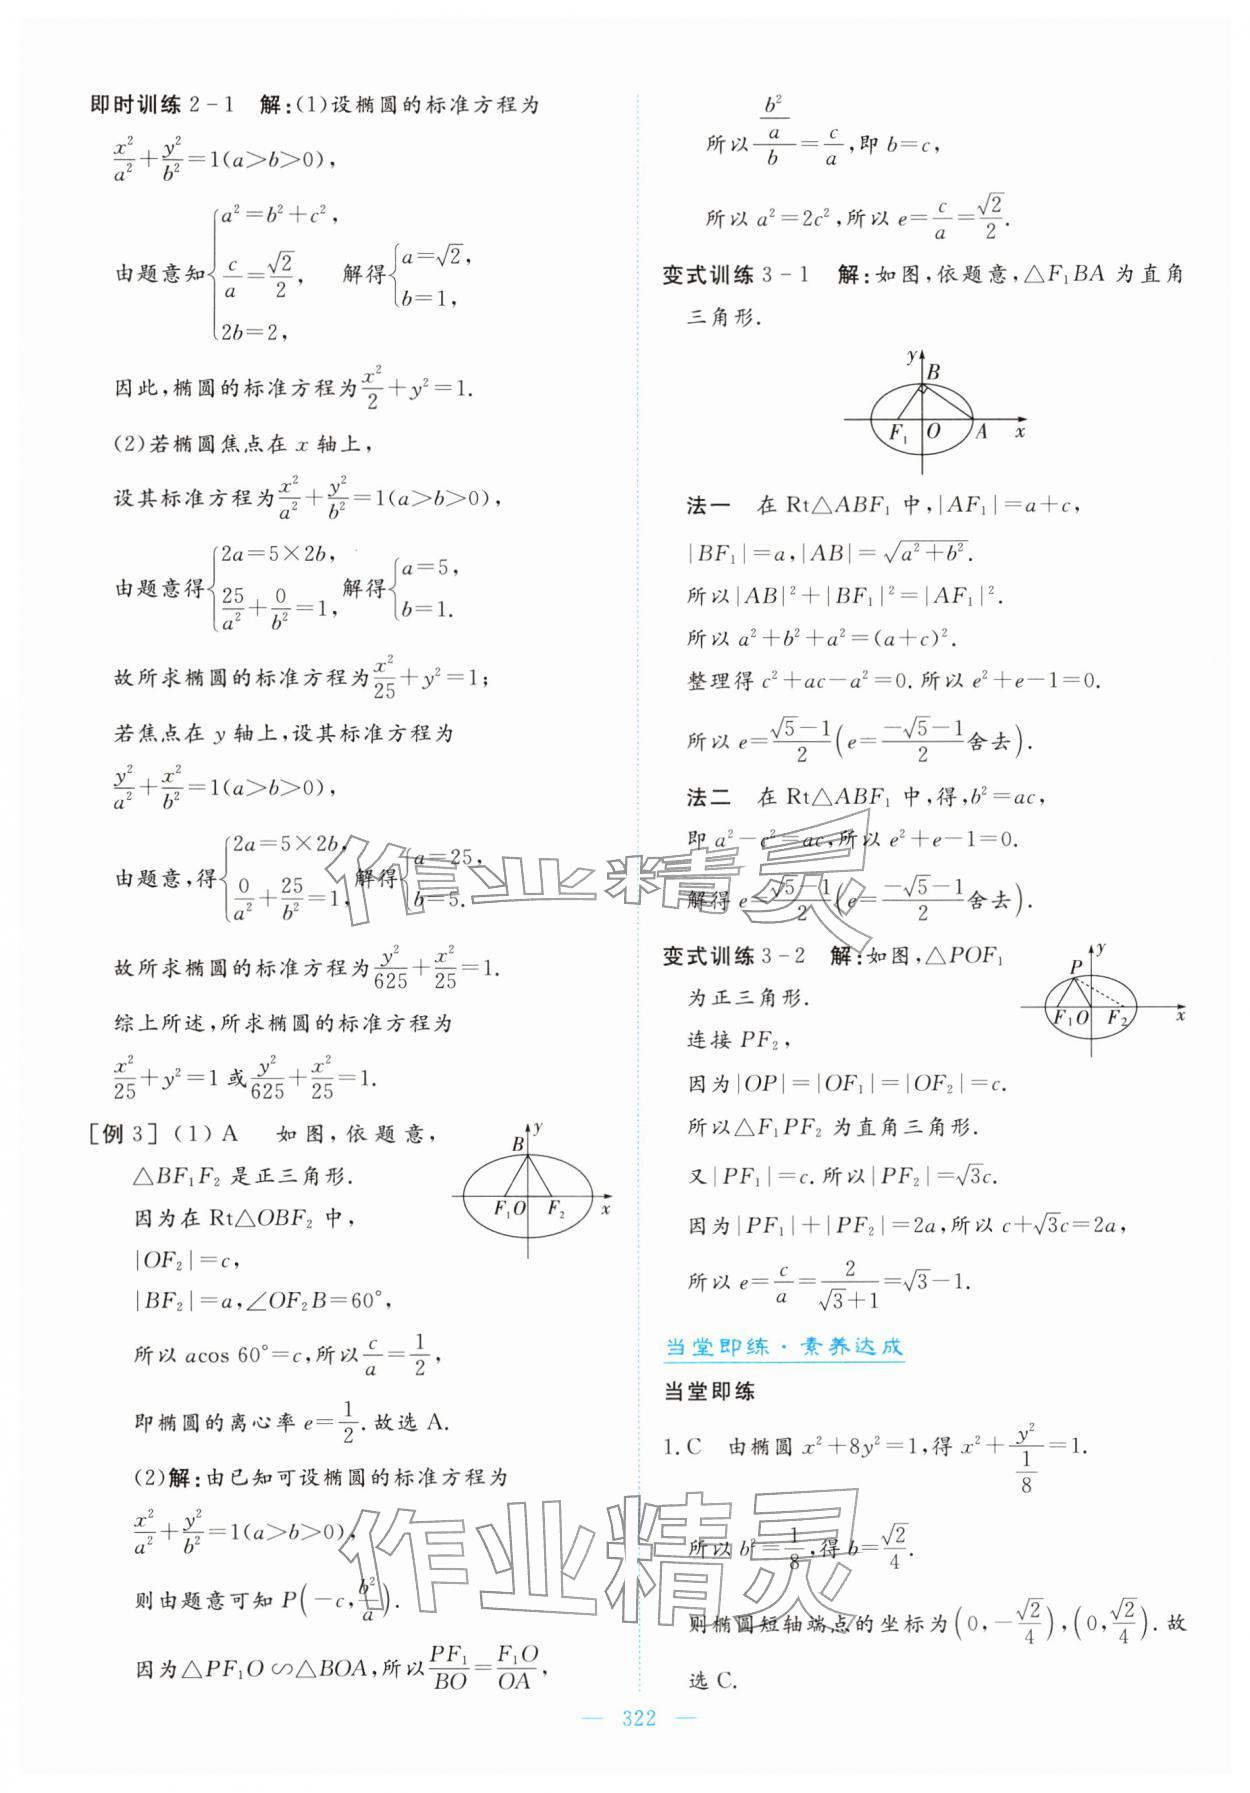 即时训练2-1 解:(1)设椭圆的标准方程为
x²/a²+y²/b²=1(a>b>0),
由题意知{a²=b²+c², c/a=√2/2, 2b=2, 解得{a=√2, b=1,
因此,椭圆的标准方程为x²/2+y²=1.
(2)若椭圆焦点在 x 轴上,
设其标准方程为x²/a²+y²/b²=1(a>b>0),
由题意得{2a=5×2b, 25/a²+0/b²=1, 解得{a=5, b=1.
故所求椭圆的标准方程为x²/25+y²=1;
若焦点在 y 轴上,设其标准方程为
y²/a²+x²/b²=1(a>b>0),
由题意,得{2a=5×2b, 0/a²+25/b²=1, 解得{a=25, b=5.
故所求椭圆的标准方程为y²/625+x²/25=1.
综上所述,所求椭圆的标准方程为
x²/25+y²=1 或y²/625+x²/25=1.
[例3](1)A 如图,依题意,
△BF₁F₂ 是正三角形.
因为在 Rt△OBF₂ 中,
|OF₂|=c,
|BF₂|=a,∠OF₂B=60°,
所以 acos 60°=c,所以c/a=1/2,
即椭圆的离心率 e=1/2.故选 A.
(2)解:由已知可设椭圆的标准方程为
x²/a²+y²/b²=1(a>b>0),
则由题意可知 P(-c,b²/a).
因为△PF₁O∽△BOA,所以PF₁/BO=F₁O/OA,
y
B
F₁ O F₂ x
所以(b²/a)/b=c/a,即 b=c,
所以 a²=2c²,所以 e=c/a=√2/2.
变式训练3-1 解:如图,依题意,△F₁BA 为直角
三角形.
y
B
F₁ O A x
法一 在 Rt△ABF₁ 中,|AF₁|=a+c,
|BF₁|=a,|AB|=√(a²+b²).
所以|AB|²+|BF₁|²=|AF₁|².
所以 a²+b²+a²=(a+c)².
整理得 c²+ac-a²=0.所以 e²+e-1=0.
所以 e=(√5-1)/2(e=(-√5-1)/2 舍去).
法二 在 Rt△ABF₁ 中,得,b²=ac,
即 a²-c²=ac,所以 e²+e-1=0.
解得 e=(√5-1)/2(e=(-√5-1)/2 舍去).
变式训练3-2 解:如图,△POF₁
为正三角形.
连接 PF₂,
因为|OP|=|OF₁|=|OF₂|=c.
所以△F₁PF₂ 为直角三角形.
又|PF₁|=c.所以|PF₂|=√3c.
因为|PF₁|+|PF₂|=2a,所以 c+√3c=2a,
所以 e=c/a=2/(√3+1)=√3-1.
y
P
F₁ O F₂ x
当堂即练·素养达成
当堂即练
1.C 由椭圆 x²+8y²=1,得 x²+y²/(1/8)=1.
所以 b²=1/8,得 b=√2/4.
则椭圆短轴端点的坐标为(0,-√2/4),(0,√2/4).故
选 C.
— 322 —
作业精灵
作业精灵